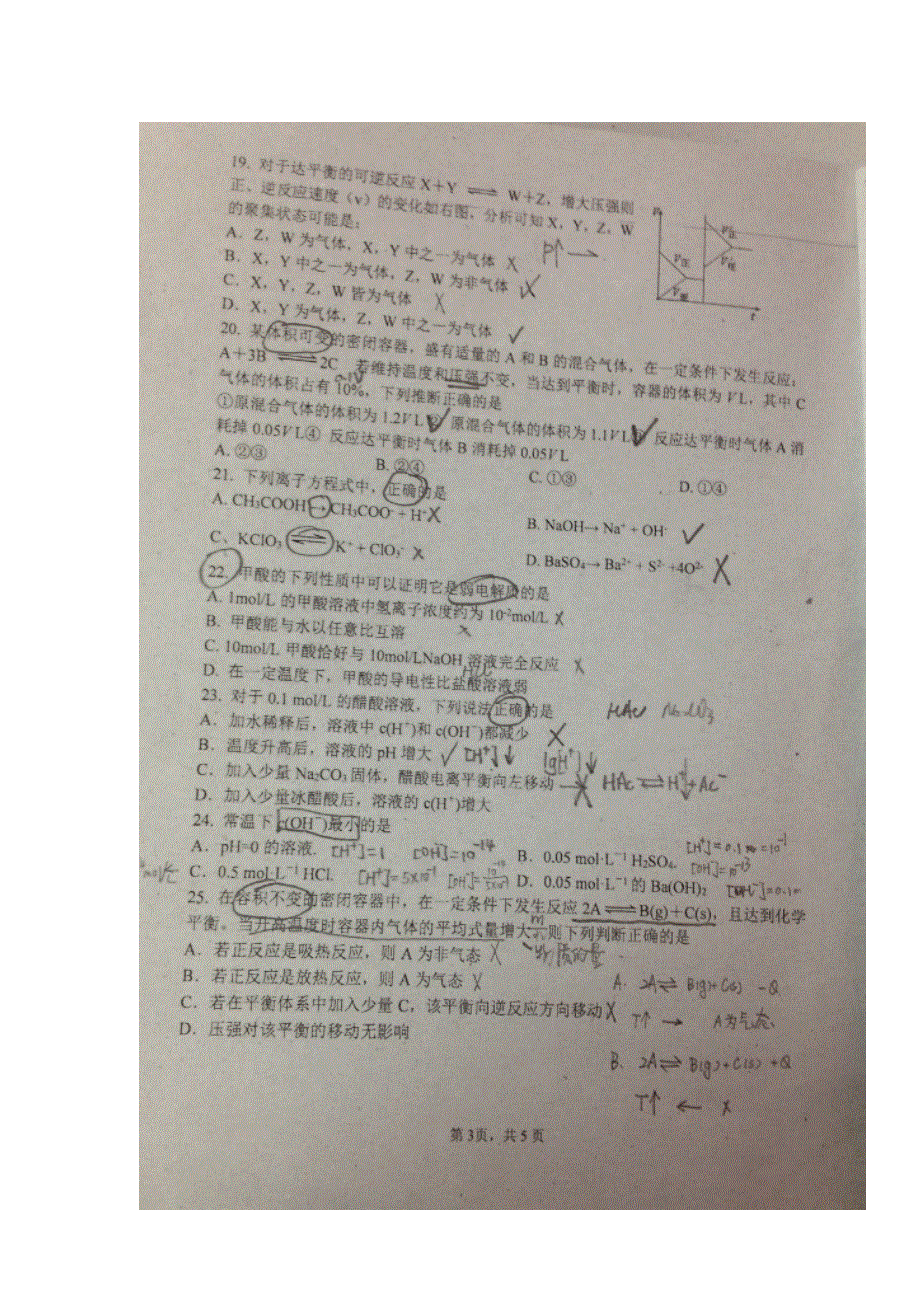 19. 对于达平衡的可逆反应 X+Y ⇌ W+Z,增大压强则
正、逆反应速度(v)的变化如右图,分析可知 X,Y,Z,W
的聚集状态可能是:
A. Z,W 为气体,X,Y 中之一为气体 X P↑ →
B. X,Y 中之一为气体,Z,W 为非气体 X
C. X,Y,Z,W 皆为气体 X
D. X,Y 为气体,Z,W 中之一为气体 ✓
v正
v逆
v正
v逆
t
20. 某体积可变的密闭容器,盛有适量的 A 和 B 的混合气体,在一定条件下发生反应:
A+3B ⇌ 2C 若维持温度和压强不变,当达到平衡时,容器的体积为 V L,其中 C
气体的体积占有 10%,下列推断正确的是
①原混合气体的体积为 1.2V L ② 原混合气体的体积为 1.1V L ③ 反应达平衡时气体 A 消
耗掉 0.05V L④ 反应达平衡时气体 B 消耗掉 0.05V L
A. ②③ B. ②④ C. ①③ D. ①④
21. 下列离子方程式中,正确的是
A. CH₃COOH→CH₃COO⁻ + H⁺ X B. NaOH→ Na⁺ + OH⁻ ✓
C、KClO₃ ⇌ K⁺ + ClO₃⁻ X D. BaSO₄→ Ba²⁺ + S²⁻ +4O²⁻ X
22. 甲酸的下列性质中可以证明它是弱电解质的是
A. 1mol/L 的甲酸溶液中氢离子浓度约为 10⁻²mol/L X
B. 甲酸能与水以任意比互溶 X
C. 10mol/L 甲酸恰好与 10mol/LNaOH 溶液完全反应 X
D. 在一定温度下,甲酸的导电性比盐酸溶液弱
23. 对于 0.1 mol/L 的醋酸溶液,下列说法正确的是 HAc
A. 加水稀释后,溶液中 c(H⁺)和 c(OH⁻)都减少 X
B. 温度升高后,溶液的 pH 增大 ✓ [H⁺]↓ lg[H⁺]↓
C. 加入少量 Na₂CO₃ 固体,醋酸电离平衡向左移动 → X HAc⇌H⁺↓+Ac⁻
D. 加入少量冰醋酸后,溶液的 c(H⁺)增大
24. 常温下 c(OH⁻)最小的是
A. pH=0 的溶液. [H⁺]=1 [OH⁻]=10⁻¹⁴ B. 0.05 mol·L⁻¹ H₂SO₄. [H⁺]=0.1 =10⁻¹ [OH⁻]=10⁻¹³
C. 0.5 mol·L⁻¹ HCl. [H⁺]=5×10⁻¹ D. 0.05 mol·L⁻¹ 的 Ba(OH)₂ [OH⁻]=0.1
25. 在容积不变的密闭容器中,在一定条件下发生反应 2A⇌B(g)+C(s),且达到化学
平衡。当升高温度时容器内气体的平均式量增大,则下列判断正确的是
A. 若正反应是吸热反应,则 A 为非气态 X 物质的量
B. 若正反应是放热反应,则 A 为气态 X A. 2A⇌B(g)+C(s) -Q
C. 若在平衡体系中加入少量 C,该平衡向逆反应方向移动 X T↑ → A为气态
D. 压强对该平衡的移动无影响
B. 2A⇌B(g)+C(s) +Q
T↑ ← X
第 3页,共 5 页